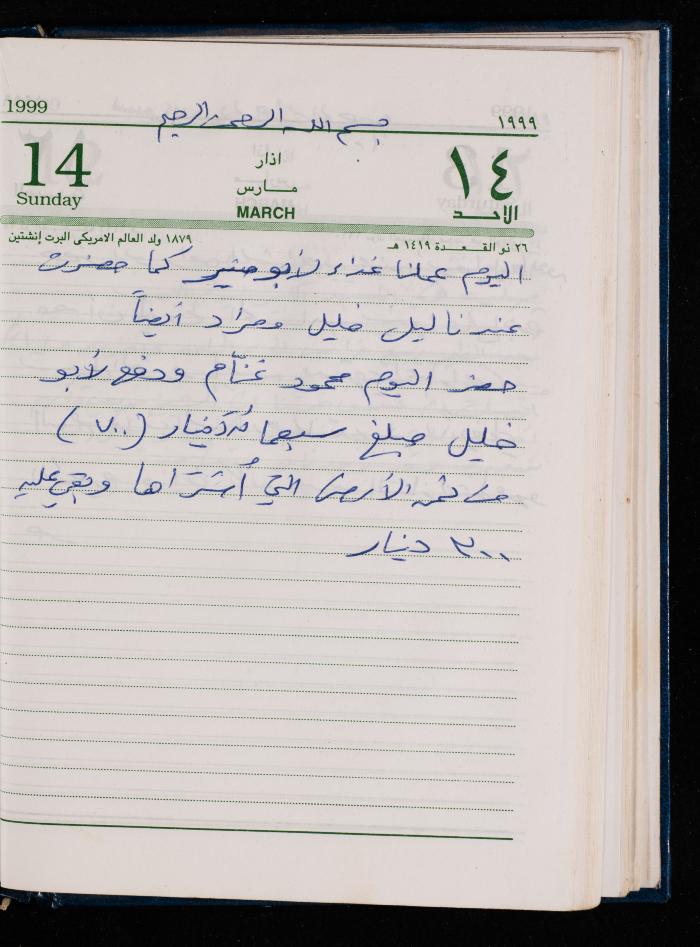 1999 بسم الله الرحمن الرحيم ١٩٩٩
14 اذار ١٤
Sunday مارس الاحد
MARCH
١٨٧٩ ولد العالم الامريكي البرت إنشتين ٢٦ ذو القعدة ١٤١٩ هـ
اليوم عملنا غذاء لأبو منير كما حضرت
عندنا ليل خليل ومراد أيضاً
حضر اليوم محمود غنّام ودفع لأبو
خليل مبلغ سبعمائة دينار (٧٠٠)
من ثمن الأرض التي أشتراها وبقي عليه
٣٠٠ دينار